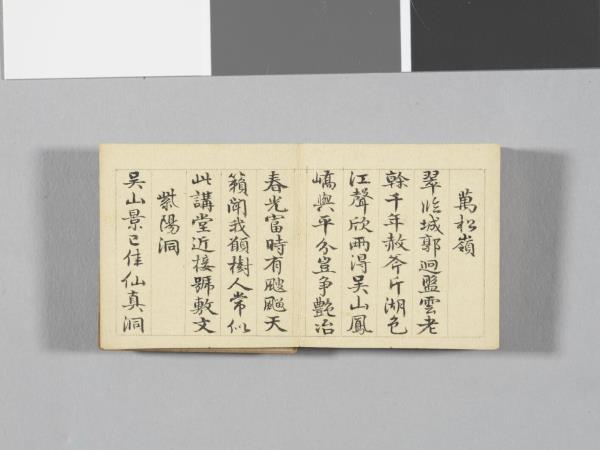 萬松嶺
翠临城郭迥盤雲老
榦千年赦斧斤湖色
江聲欣兩得吴山鳳
嶠與平分豈争艷冶
春光富時有颼飀天
籟聞我願樹人常似
此講堂近接號敷文
紫陽洞
吴山景已佳仙真洞